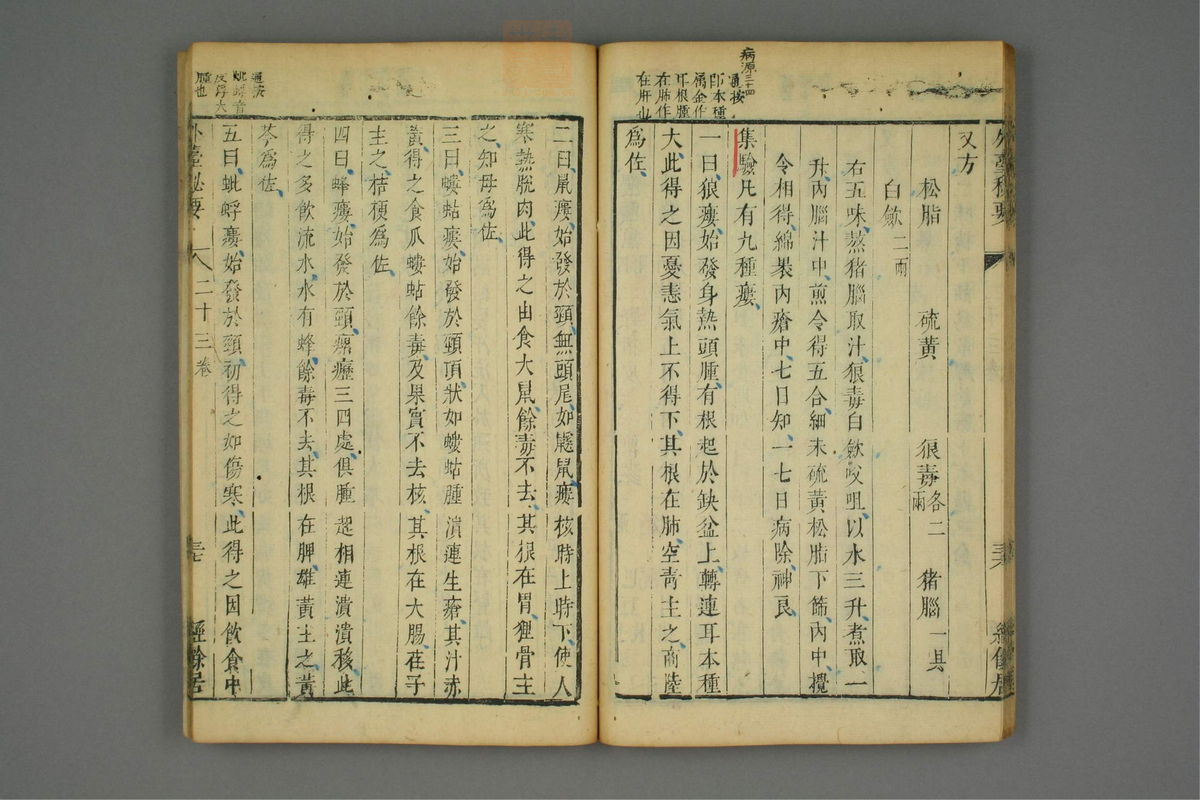 病源三十四
通按
即本種
屬金作
耳根腫
在肺作
在肝也
外臺秘要
又方
松脂 硫黃 狼毒各二兩 猪腦一具
白斂二兩
右五味蒸猪腦取汁狼毒白斂㕮咀以水三升煮取一
升內腦汁中煎令得五合細末硫黃松脂下篩內中攪
令相得綿裹內瘡中七日知一七日病除神良
集驗凡有九種瘻
一曰狼瘻始發身熱頭腫有根起於缺盆上轉連耳本種
大此得之因憂恚氣上不得下其根在肺空靑主之商陸
爲佐
二曰鼠瘻始發於頸無頭尾如鼷鼠瘻核時上時下使人
寒熱脫肉此得之由食大鼠餘毒不去其根在胃狸骨主
之知母爲佐
三曰螻蛄瘻始發於頸項狀如螻蛄腫潰連生瘡其汁赤
黃得之食瓜螻蛄餘毒及果實不去核其根在大腸荏子
主之桔梗爲佐
四曰蜂瘻始發於頸瘰癧三四處俱腫起相連潰潰移此
得之多飮流水水有蜂餘毒不去其根在脾雄黃主之黃
芩爲佐
五曰蚍蜉瘻始發於頸初得之如傷寒此得之因飮食中
通按
蚍蜉音
腫也
外臺秘要 二十三卷 經餘居